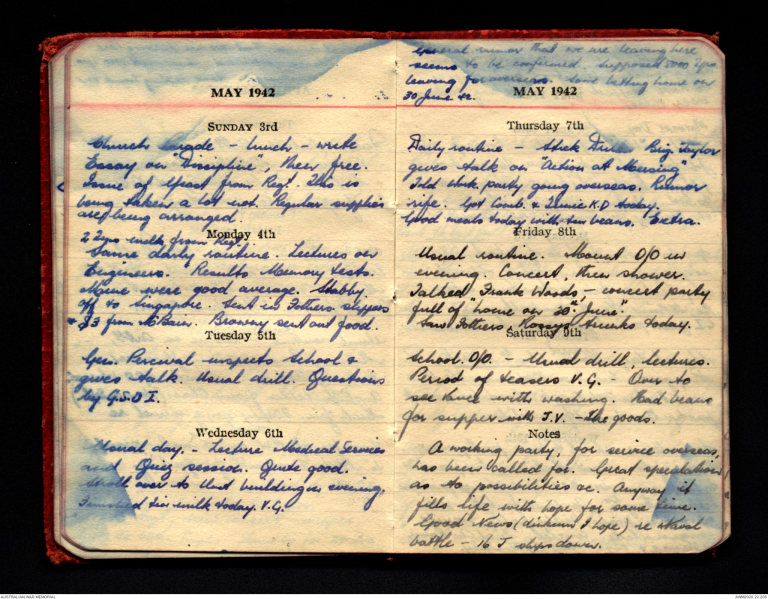 MAY 1942
SUNDAY 3rd
Church Parade - lunch - write
Essay on "Discipline", then free.
Issue of Yeast from Regt. This is
being taken a lot not. Regular supplies
are being arranged.
Monday 4th
2 2yrs milk from Regt.
Same daily routine. Lectures on
Engineers. Results Memory tests.
Mine were good average.
off to Singapore. Sent in Fothers slippers
$3 from McBain. Browny sent out food.
Tuesday 5th
Gen. Percival inspects School &
gives talk. Usual drill. Questions
by G.S.O I.
Wednesday 6th
Usual day. - Lecture Medical Services
and Quiz session. Quite good.
Stroll over to Unit building in evening.
Finished tin milk today. V.G.
General rumor that we are leaving here
seems to be confirmed. Supposed 8000
leaving for overseas. Some betting home on
30 June &c.
MAY 1942
Thursday 7th
Daily routine - Stick Drill Brig. Taylor
gives talk on "Action at Mersing"
Told work party going overseas. Rumor
rife. Got Comb & Tunic K.D today.
Good meals today with tin beans. Extra.
Friday 8th
Usual routine. Mount O/O in
evening. Concert, then shower.
Talked Frank Woods - concert party
full of "home on 30th June".
Saw Fothers, today.
Saturday 9th
School. O/O. - Usual drill, lectures.
Period of teasers V.G. - Over to
see with washing. Had beans
for supper with J.V. - The goods.
Notes
A working party, for service overseas,
has been called for. Great speculation
as to possibilities &c. Anyway it
fills life with hope for some time.
Good News (dinkum I hope) re Naval
battle - 16 J ships down.
AUSTRALIAN WAR MEMORIAL